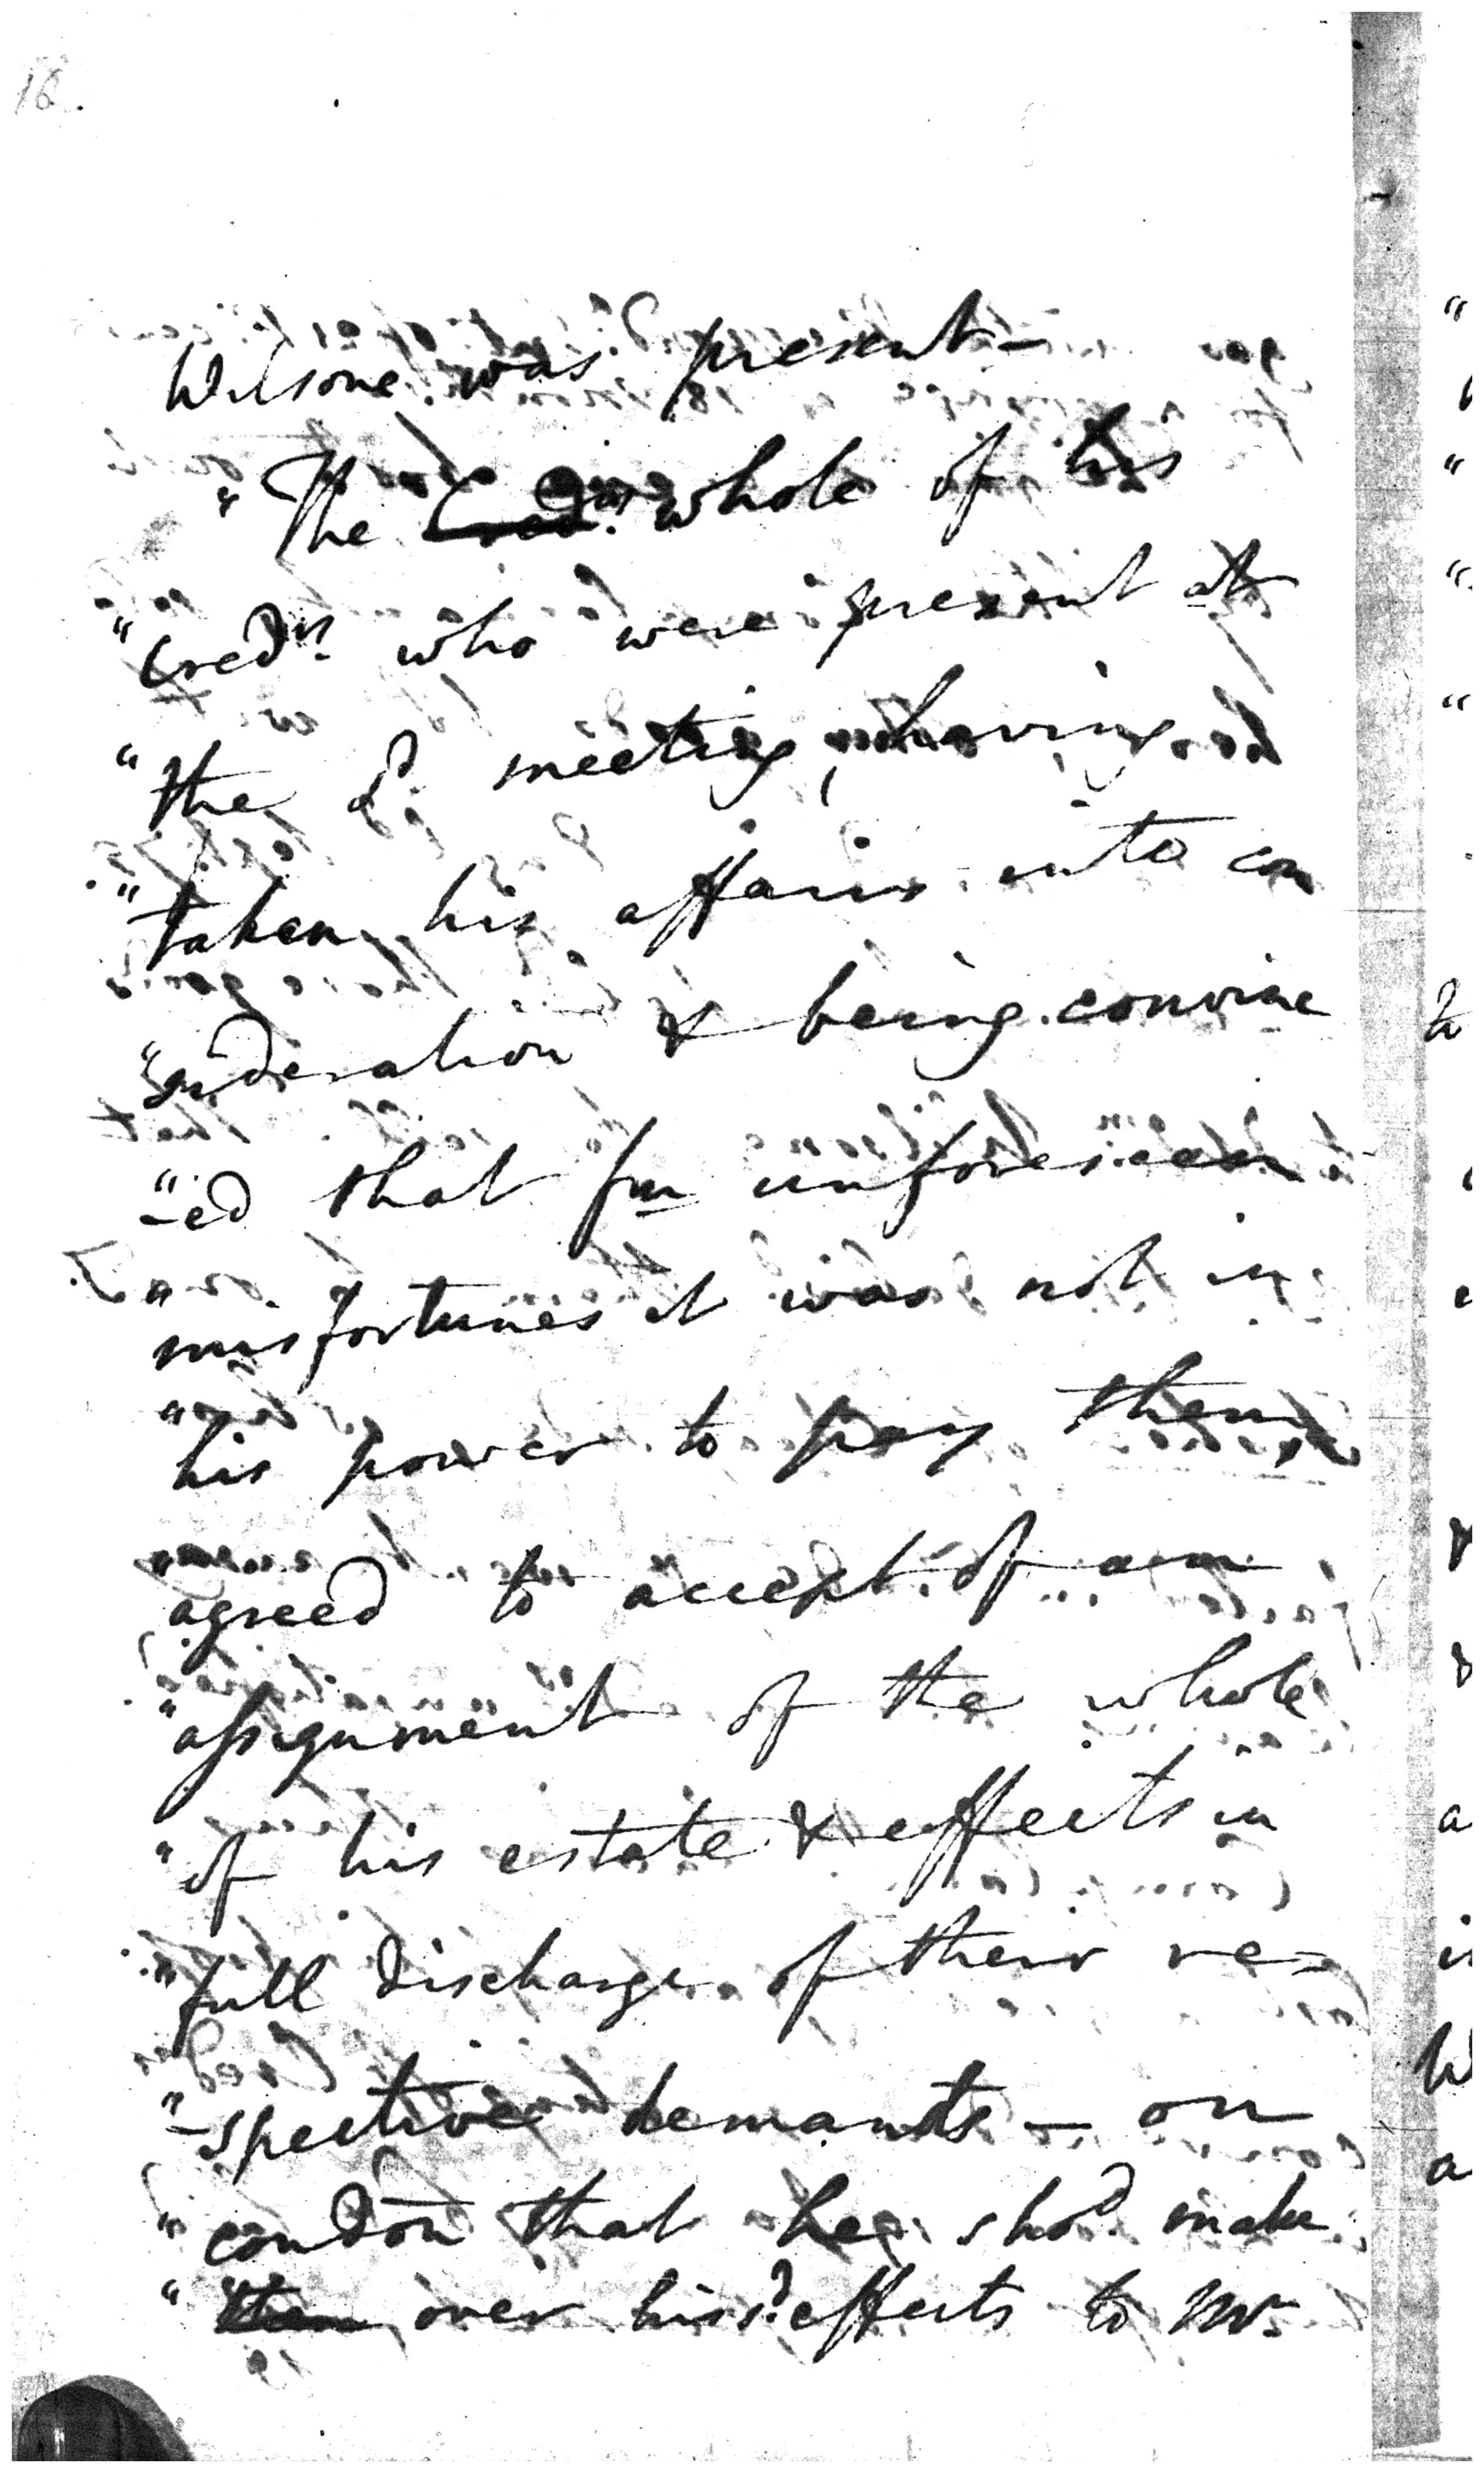 16.
Wilsone was present –
" The Cred.rs whole of his
" Cred.rs who were present at
" the s.d meeting, having
" taken his affairs into con
" sideration & being convinc
" -ed that fm unforeseen
" misfortunes it was not in
" his power to pay them,
" agreed to accept of an
" assignment of the whole
" of his estate & effects in
" full discharge of their re-
" -spective demands – on
" condon that he sho.d make
" over his s.d effects to Mr.